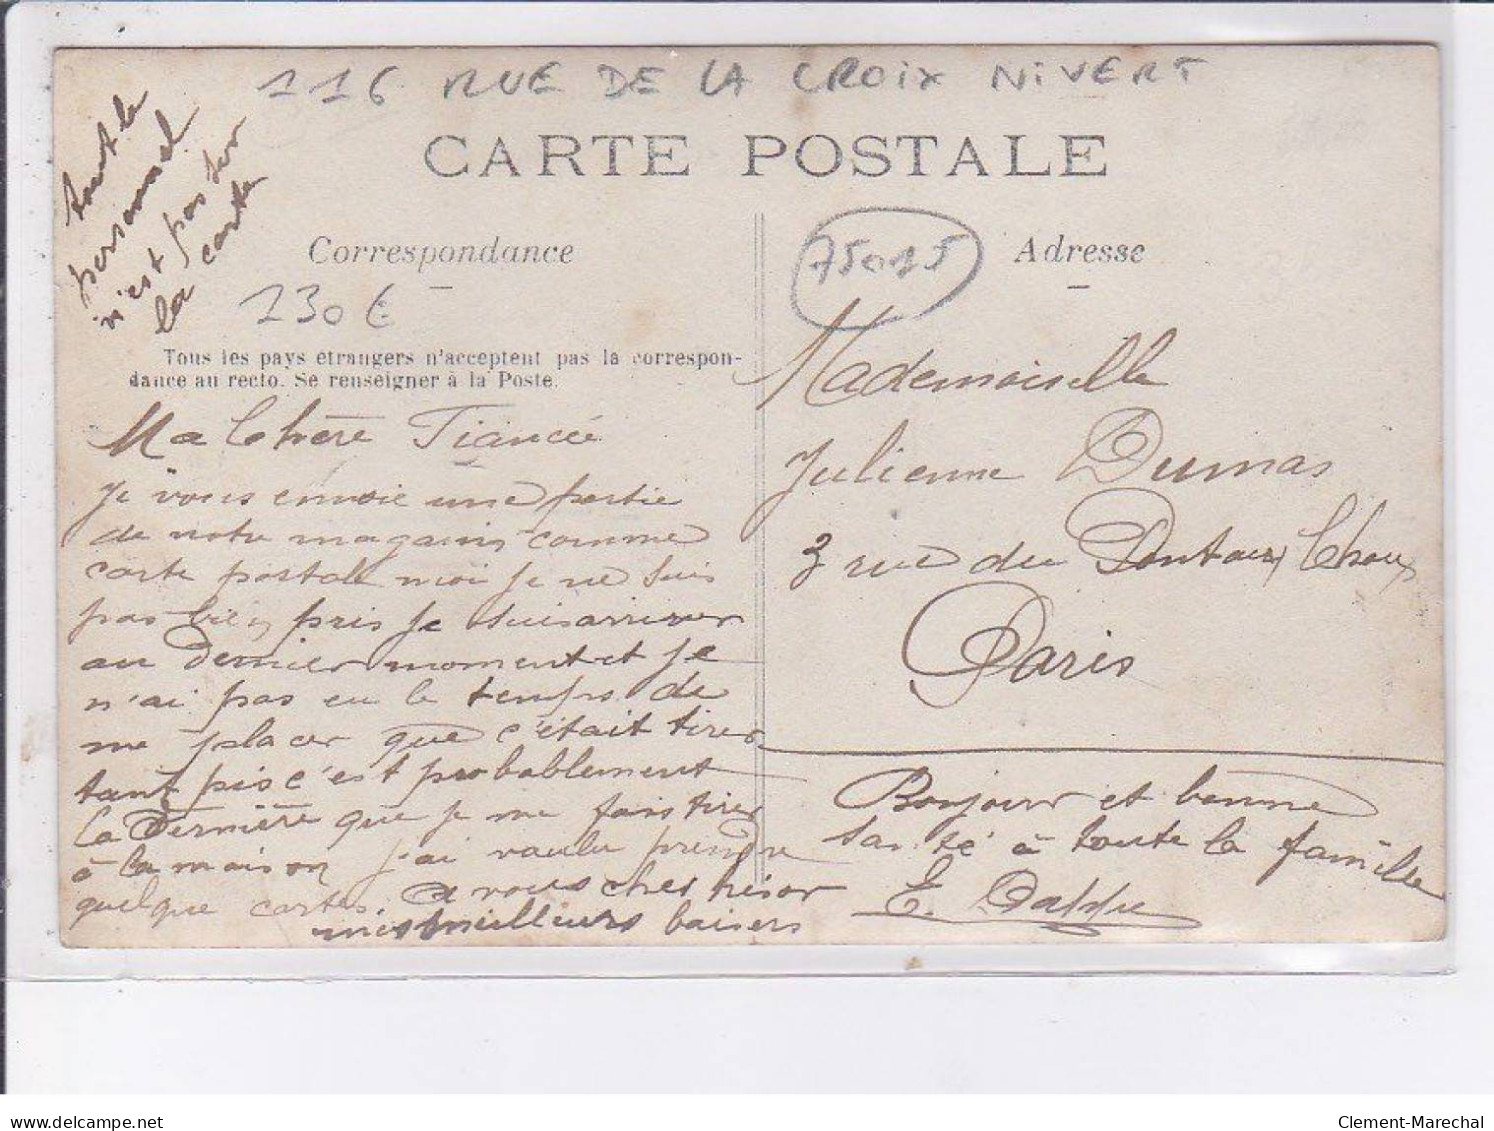 116 RUE DE LA CROIX NIVERT
tout le
personnel
n'est pas sur
la carte
CARTE POSTALE
Correspondance
75015
Adresse
130€
Tous les pays étrangers n'acceptent pas la correspon-
dance au recto. Se renseigner à la Poste.
Ma Chère Fiancée
je vous envoie une partie
de notre magasins comme
carte postale moi je ne suis
pas bien pris je suis arriver
au dernier moment et je
n'ai pas eu le temps de
me placer que c'était tirer
tant pis c'est probablement
la dernière que je me fais tirer
à la maison j'ai voulu prendre
quelque cartes. a vous cher trésor
mes meilleurs baisers
Mademoiselle
Julienne Dumas
3 rue du Pontaux Choux
Paris
Bonjour et bonne
santé à toute la famille
E.
delcampe.net
Clement-Marechal